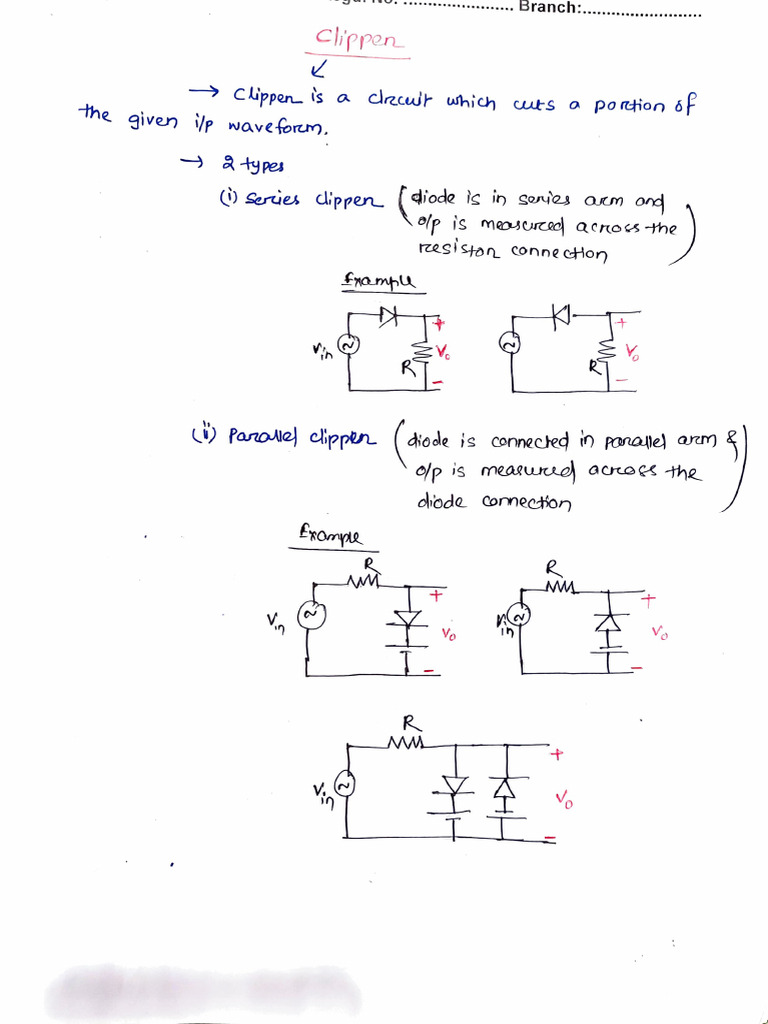 Branch:........................
Clipper
→ Clipper is a circuit which cuts a portion of
the given i/p waveform.
→ 2 types
(i) Series clipper (diode is in series arm and
o/p is measured across the
resistor connection)
Example
Vin R + Vo -
R + Vo -
(ii) Parallel clipper (diode is connected in parallel arm &
o/p is measured across the
diode connection)
Example
R
Vin + Vo -
R
Vin + Vo -
R
Vin + Vo -